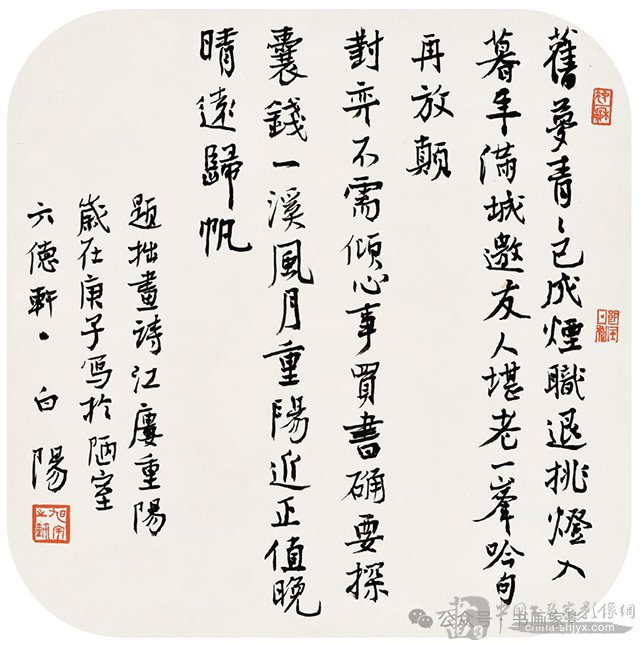 舊夢青〻已成煙職退挑燈入
暮年滿城邀友人堪老一峯吟句
再放顛
對弈不需傾心事買書确要探
囊錢一溪風月重陽近正值晚
晴遠歸帆
題拙畫詩江廔重陽
歲在庚子寫於陋室
六德軒·白陽
公众号·书画家
中国书画家影像網
china-shjyx.com